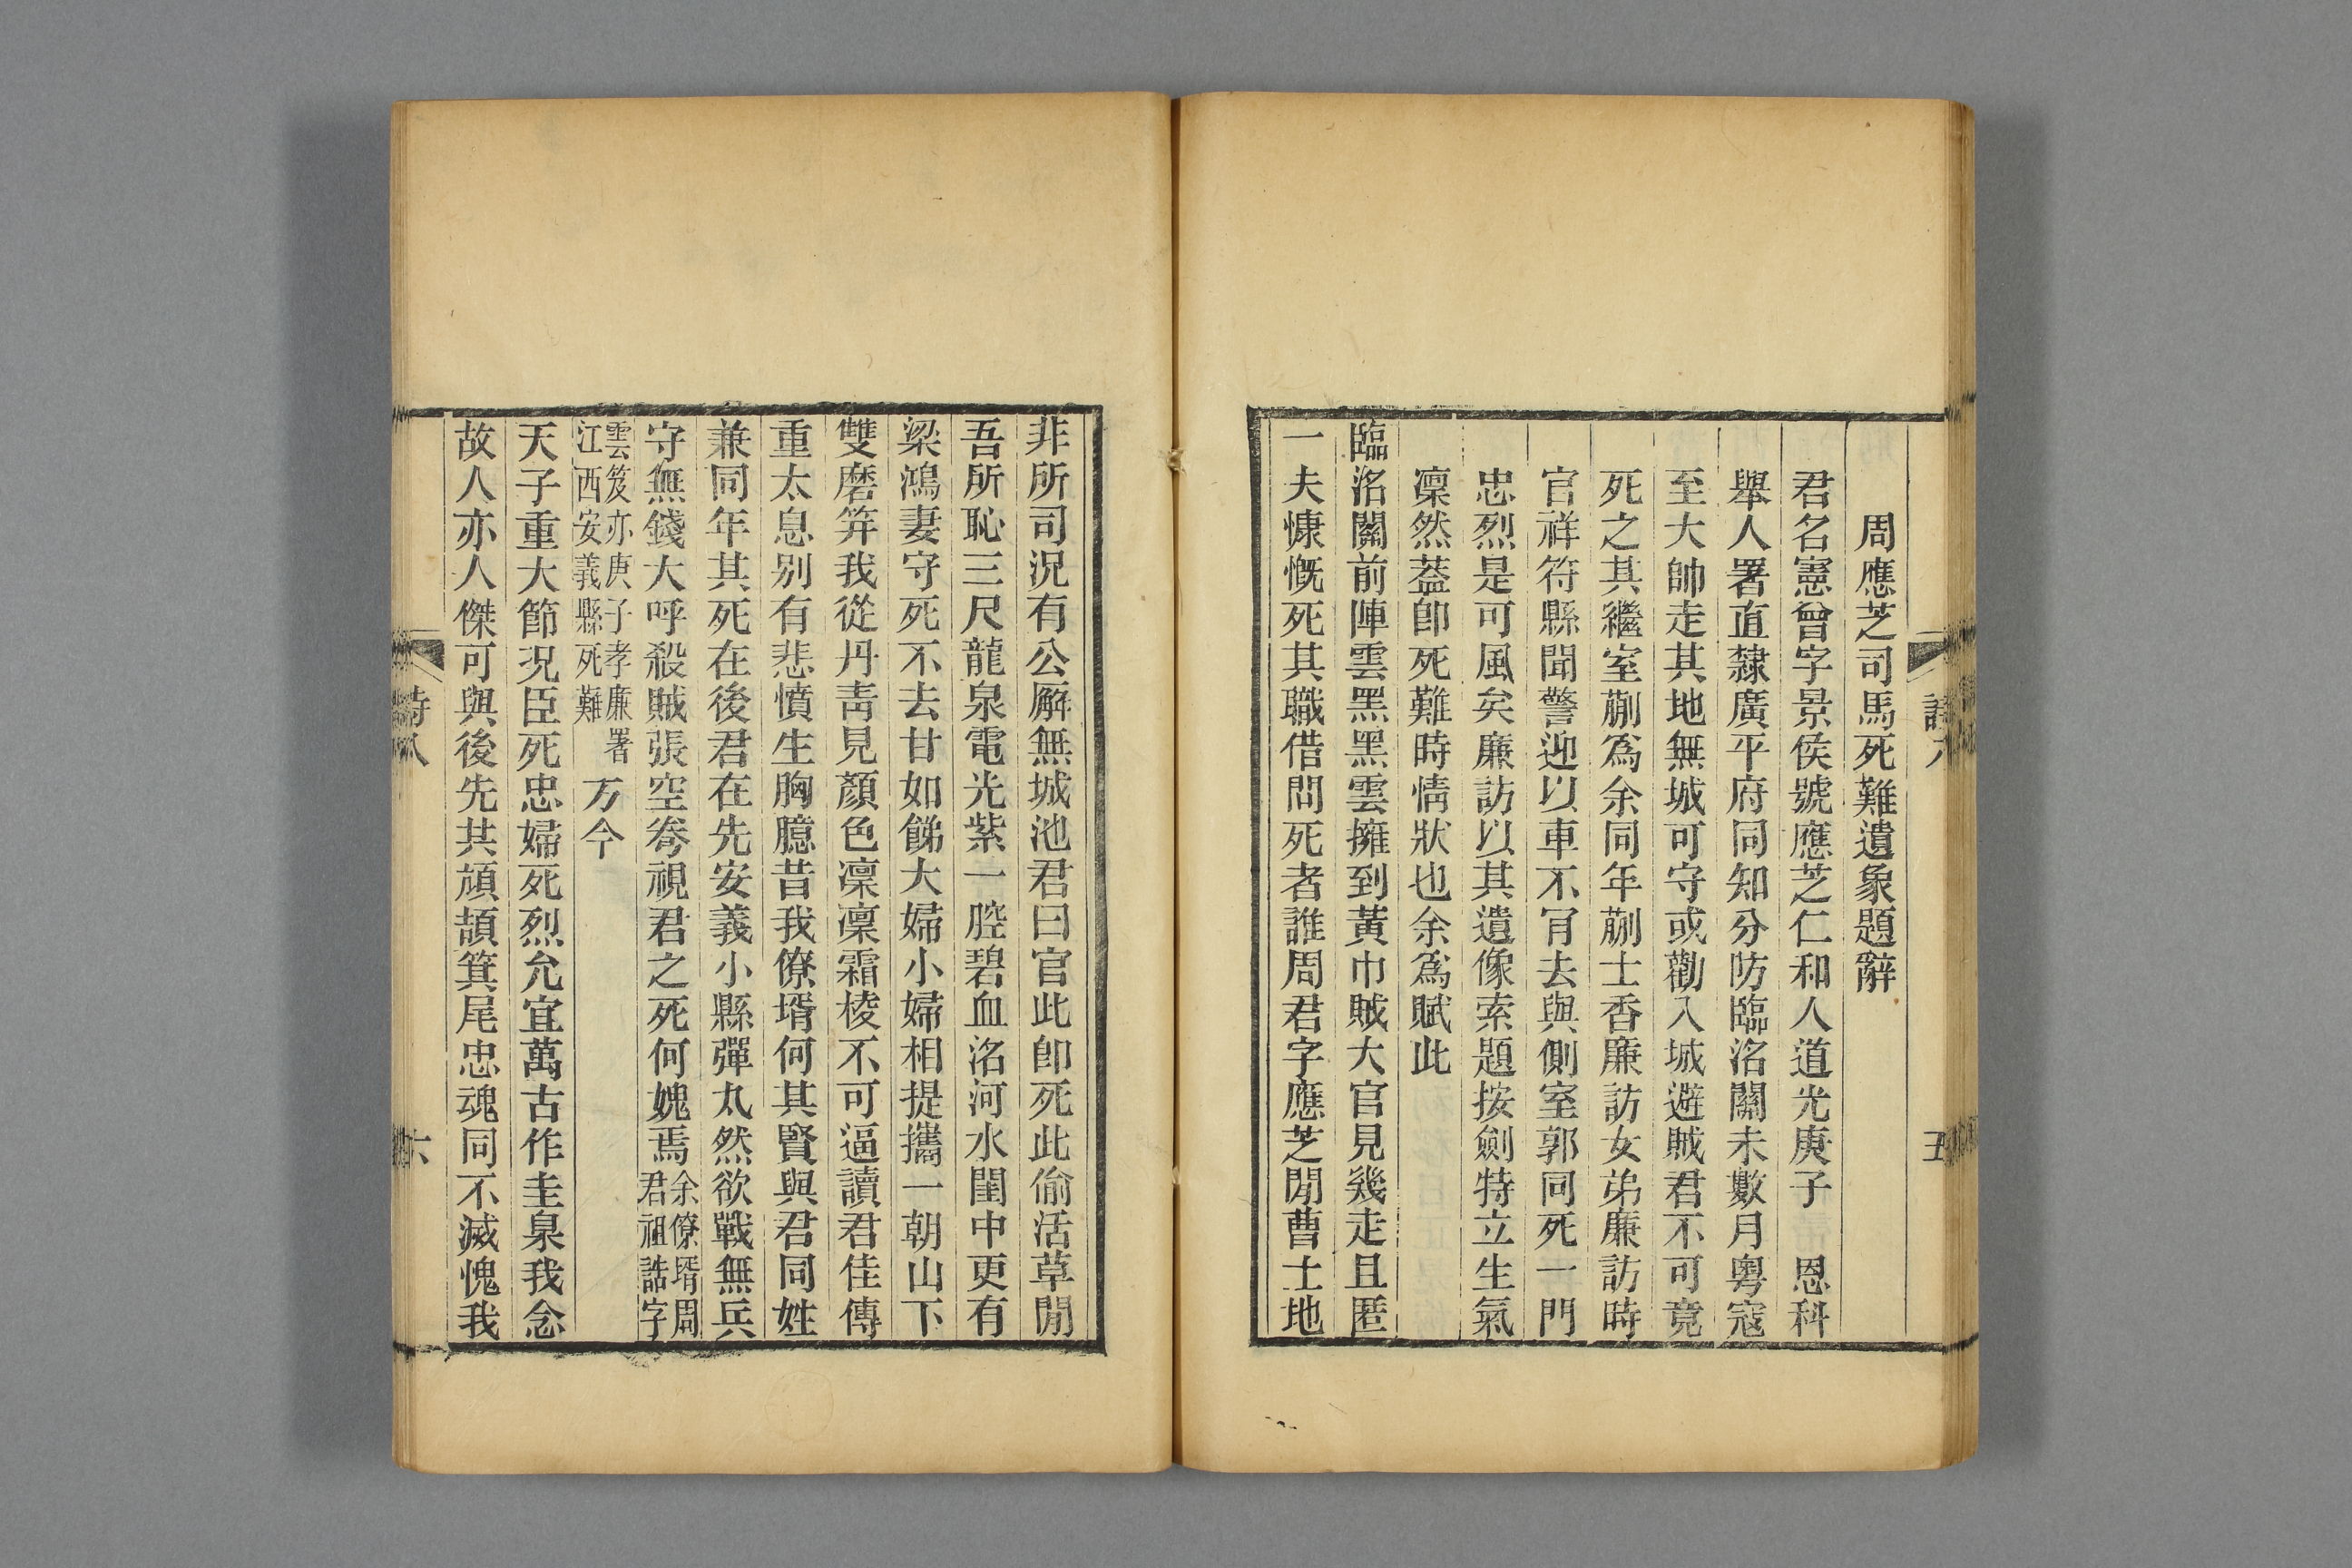 周應芝司馬死難遺象題辭
君名憲曾字景侯號應芝仁和人道光庚子　恩科
舉人署直隸廣平府同知分防臨洺關未數月粵寇
至大帥走其地無城可守或勸入城避賊君不可竟
死之其繼室蒯爲余同年蒯士香廉訪女弟廉訪時
官祥符縣聞警迎以車不肎去與側室郭同死一門
忠烈是可風矣廉訪以其遺像索題按劍特立生氣
凜然葢卽死難時情狀也余爲賦此
臨洺關前陣雲黑黑雲擁到黃巾賊大官見幾走且匿
一夫慷慨死其職借問死者誰周君字應芝閒曹土地
詩八
五
非所司況有公廨無城池君曰官此卽死此偷活草閒
吾所恥三尺龍泉電光紫一腔碧血洺河水閨中更有
梁鴻妻守死不去甘如餳大婦小婦相提攜一朝山下
雙磨笄我從丹靑見顏色凜凜霜棱不可逼讀君佳傳
重太息别有悲憤生胸臆昔我僚壻何其賢與君同姓
兼同年其死在後君在先安義小縣彈丸然欲戰無兵
守無錢大呼殺賊張空弮視君之死何媿焉余僚壻周君祖誥字
雲笈亦庚子孝廉署江西安義縣死難方今
天子重大節況臣死忠婦死烈允宜萬古作圭臬我念
故人亦人傑可與後先共頏頡箕尾忠魂同不滅愧我
詩八
六